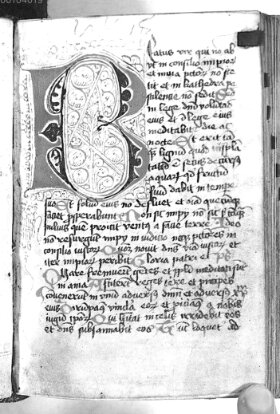 B
eatus vir qui no ab
yt in consilio impior
et in via pctor no ste
tit et in cathedra pe
stilencie no sedit S
in lege dni voluntas
eius et i lege eius
meditabit die ac
nocte Et erit ta
q lignu quod plan
tatu e secus decurs
aquar qd fructu
suu dabit in tempe
suo Et foliu eius no defluet et oia que cuq
faciet pspabunt Non sic impii no sic s
puluis que proicit ventus a facie terre Ideo
no resurgut impii in iudicio neq pctores in
consilio iustor Qm nouit dns via iustor et
iter impior peribit Gloria patri
Quare fremuerut getes et ppli meditati st
inania Astiteru reges terre et principes
conuenerut in vnu aduersus dnm et aduersus xpm
eius Dirupam vincla eor et piciam a nobis
iugu ipor Qui hitat in celis irridebit eos
et dns subsannabit eos Tuc loquet ad